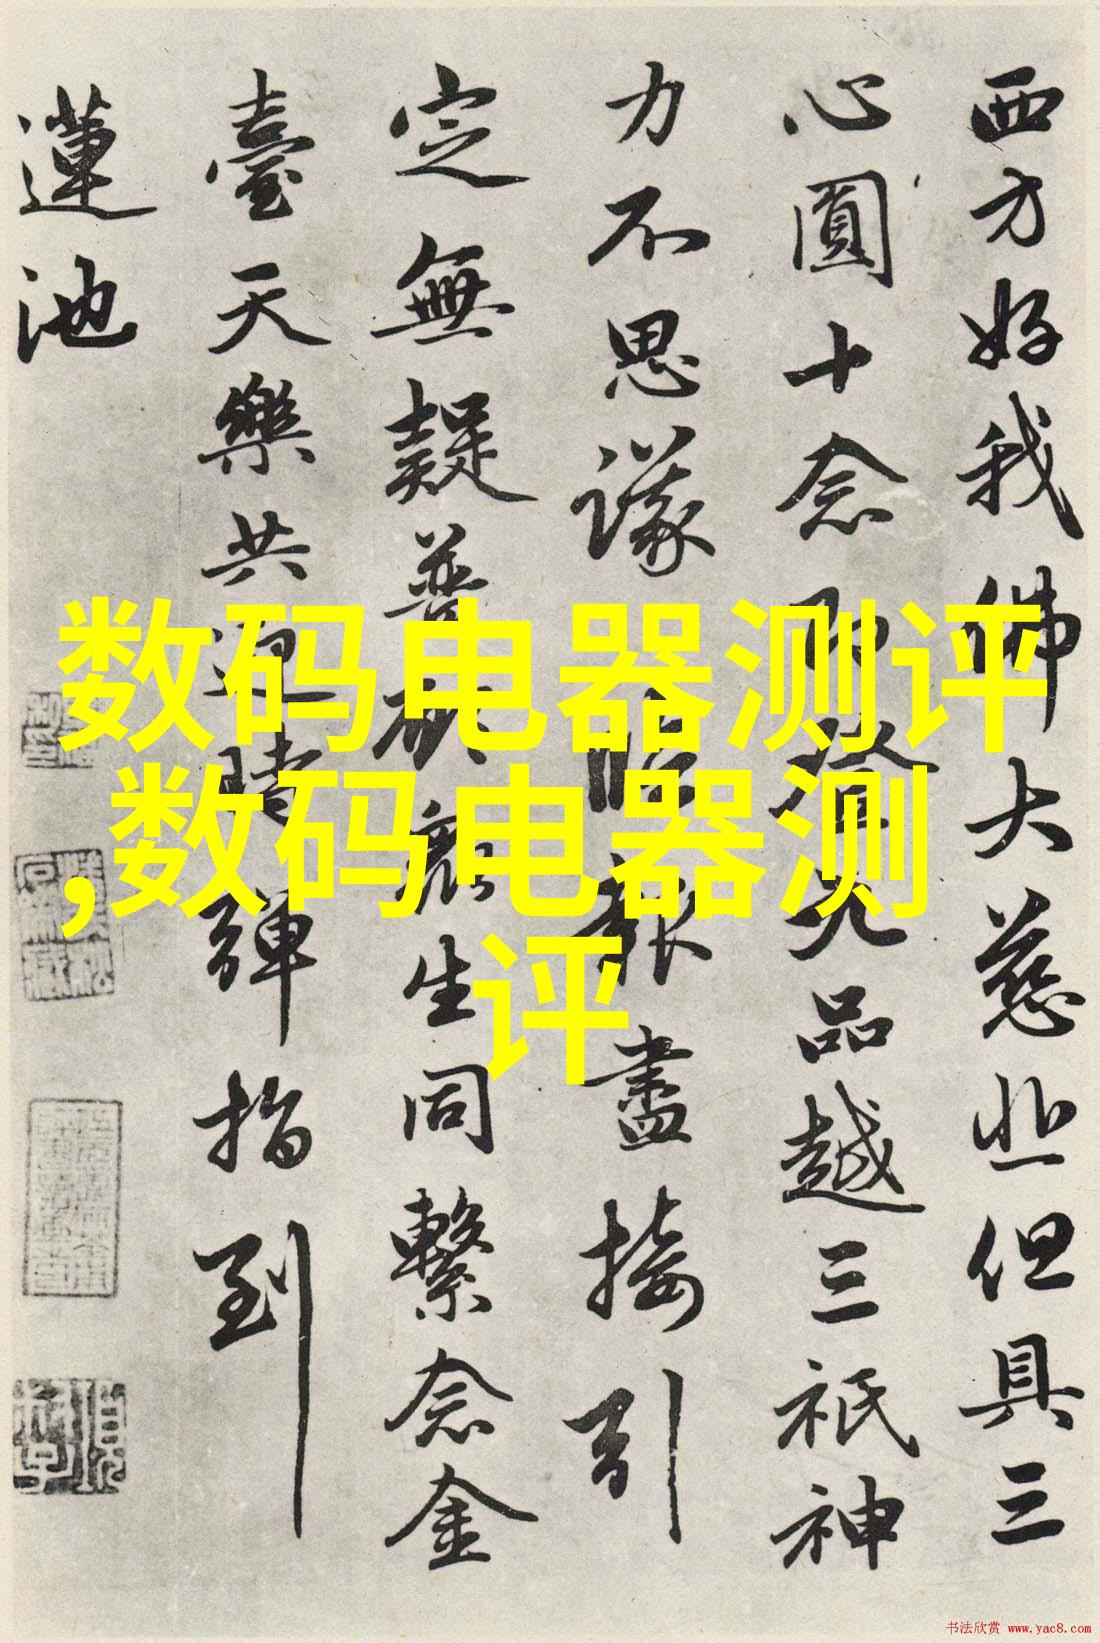 西方好我佛大慈悲但具三
心圓十念即登九品越三祇神
力不思議臨報盡接引
定無疑普願眾生同繫念金
臺天樂共迎時彈指到
蓮池
数码电器测评
,数码电器测
评
书法欣赏 www.yac8.com